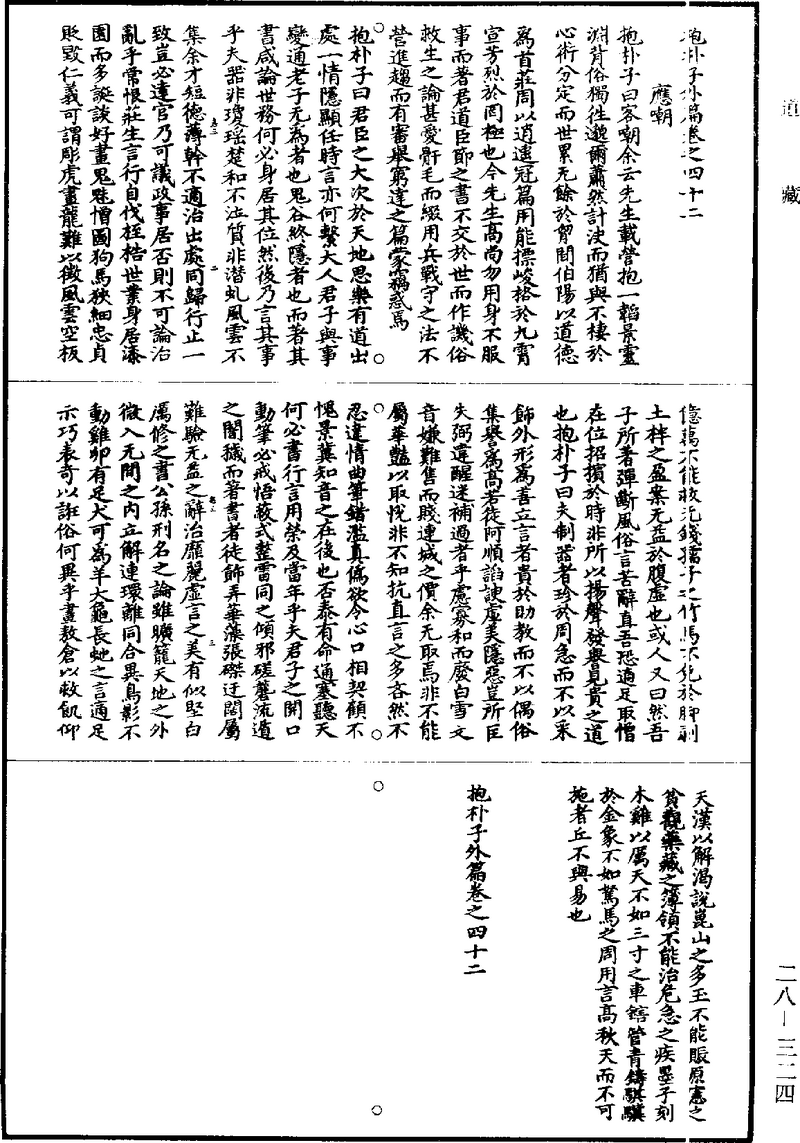 道藏
抱朴子外篇卷之四十二
應嘲
抱朴子曰客嘲余云先生載營抱一韜景靈
淵背俗獨往邈爾蕭然計決而猶與不棲於
心術分定而世累无餘於胷間伯陽以道德
爲首莊周以逍遥冠篇用能摽峻格於九霄
宣芳烈於罔極也今先生高尚勿用身不服
事而著君道臣節之書不交於世而作譏俗
救生之論甚愛骭毛而綴用兵戰守之法不
營進趨而有審舉窮達之篇蒙竊惑焉
抱朴子曰君臣之大次於天地思樂有道出
處一情隱顯任時言亦何繫大人君子與事
變通老子无爲者也鬼谷終隱者也而著其
書咸論世務何必身居其位然後乃言其事
乎夫器非瓊瑶楚和不泣質非潜虬風雲不
集余才短德薄幹不適治出處同歸行止一
致豈必達官乃可議政事居否則不可論治
亂乎常恨莊生言行自伐桎梏世業身居漆
園而多誕談好畫鬼魅憎圖狗馬狹細忠貞
貶毁仁義可謂彫虎畫龍難以徵風雲空板
億萬不能救无錢孺子之竹馬不免於脚剥
土柈之盈案无益於腹虚也或人又曰然吾
子所著彈斷風俗言苦辭直吾恐適足取憎
在位招擯於時非所以揚聲發譽見貴之道
也抱朴子曰夫制器者珍於周急而不以采
飾外形爲善立言者貴於助教而不以偶俗
集譽爲高若徒阿順諂諛虚美隱惡豈所匡
失弼違醒迷補過者乎慮寡和而廢白雪之
音嫌難售而賤連城之價余无取焉非不能
屬華豔以取悅非不知抗直言之多吝然不
忍違情曲筆錯濫真僞欲令心口相契顧不
愧景冀知音之在後也否泰有命通塞聽天
何必書行言用榮及當年乎夫君子之開口
動筆必戒悟蔽式整雷同之傾邪磋礱流遁
之闇穢而著書者徒飾弄華藻張磔迂闊屬
難驗无益之辭治靡麗虚言之美有似堅白
厲修之書公孫刑名之論雖曠籠天地之外
微入无間之内立解連環離同合異鳥影不
動雞卵有足犬可爲羊大龜長虵之言適足
示巧表奇以誑俗何異乎畫敖倉以救飢仰
天漢以解渴說崑山之多玉不能賑原憲之
貧觀藥藏之簿領不能治危急之疾墨子刻
木雞以厲天不如三寸之車鎋管青鑄騏驥
於金象不如駑馬之周用言高秋天而不可
施者丘不與易也
抱朴子外篇卷之四十二
二八—三二四